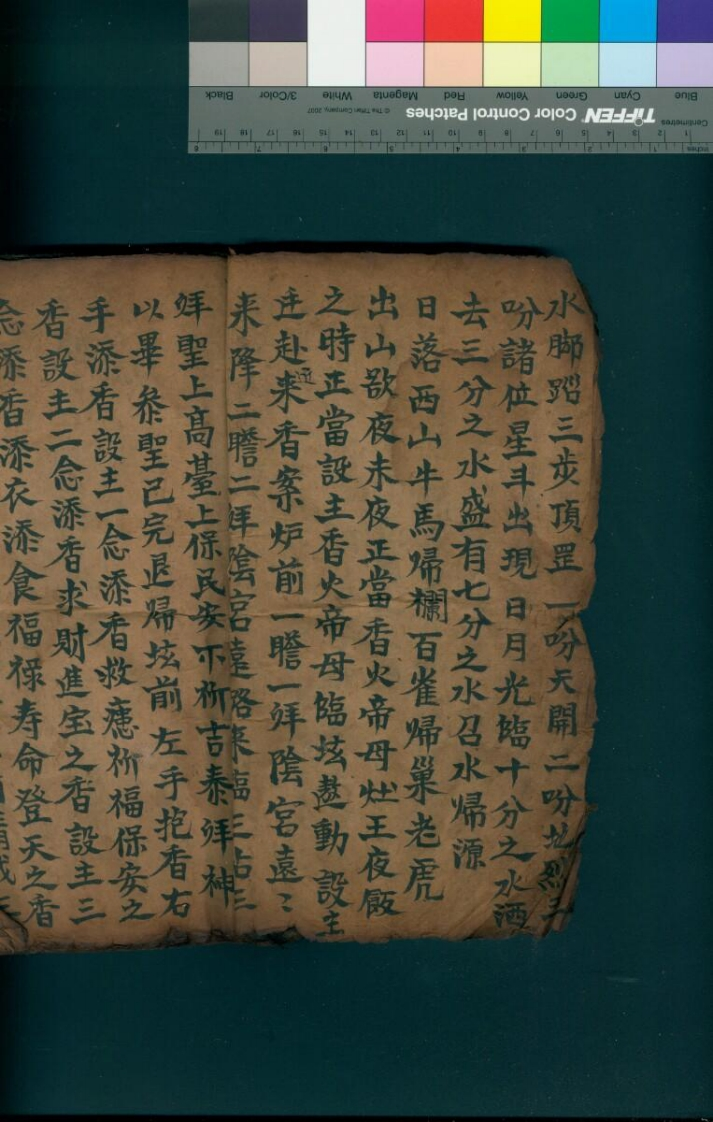 水脚踏三步頂罡一吩天開二吩地烈三
吩諸位星斗出現日月光臨十分之水洒
去三分之水盛有七分之水召水歸源
日落西山牛馬歸欄百雀歸巢老虎
出山欲夜未夜正當香火帝母灶王夜飯
之時正當設主香火帝母臨坛遨動設主
迬赴来香案炉前一瞻一拜陰宮遠〻
来降二瞻二拜陰宮遠路来臨三占三
拜聖上高臺上保民安下祈吉泰拜神
以畢叅聖已完退歸坛前左手抱香右
手添香設主一念添香救
祈福保安之
香設主二念添香求財進宝之香設主三
念添香添衣添食福禄寿命登天之香
Blue Cyan Green Yellow Red Magenta White 3/Color Black
TIFFEN Color Control Patches © The Tiffen Company, 2007
Centimetres
Inches